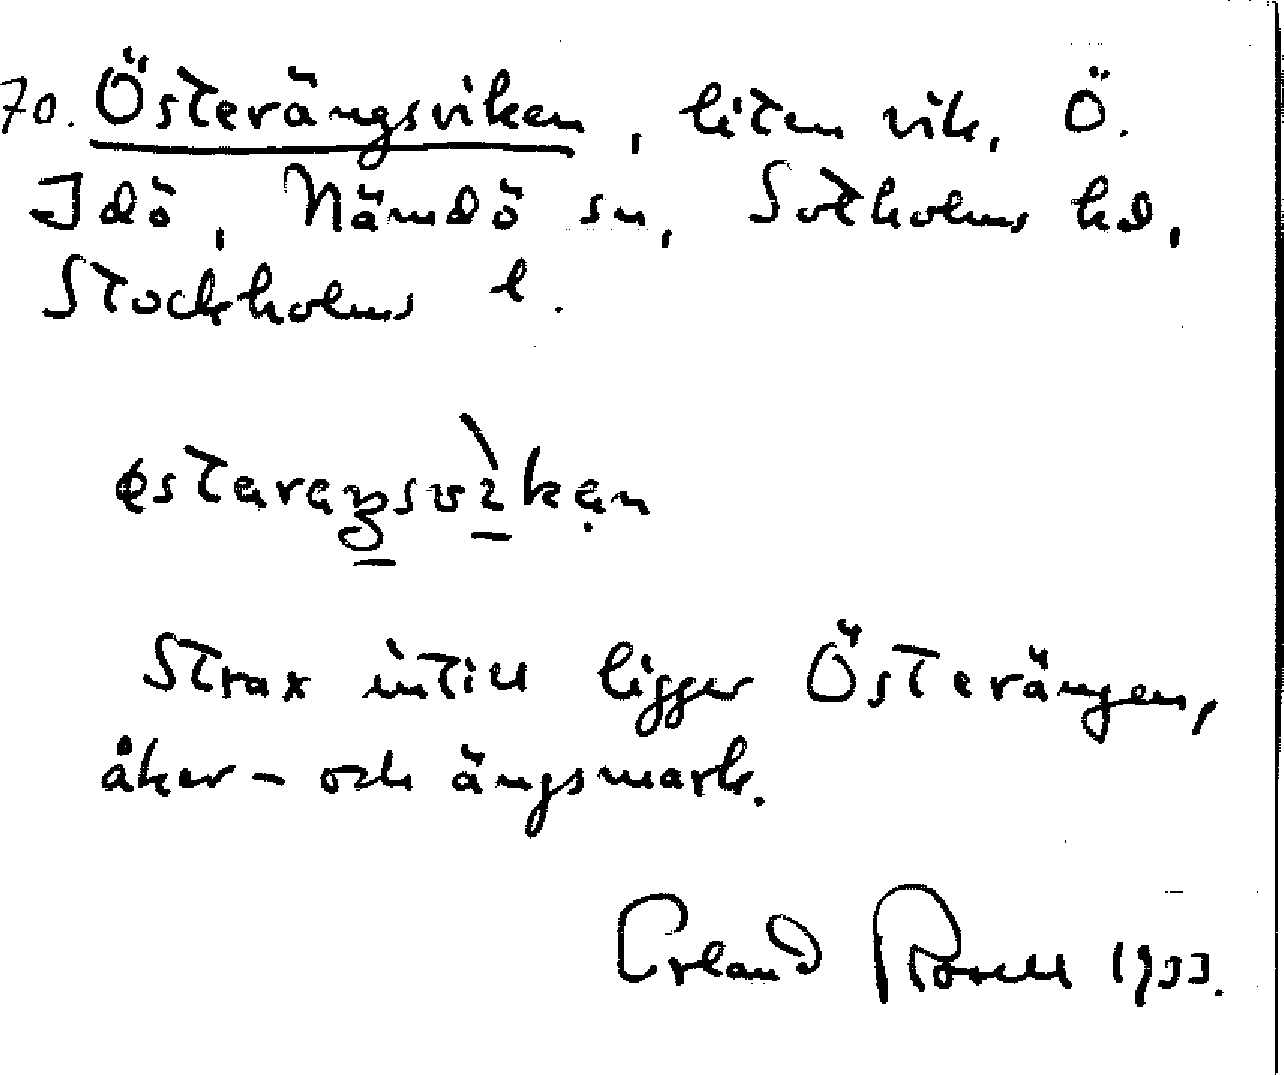 70. Österängsviken, liten vik, Ö.
Idö, Nämdö sn, Sotholms hd,
Stockholms l.
Strax intill ligger Österängen,
åker- och ängsmark.
Erland Rosell 1933.